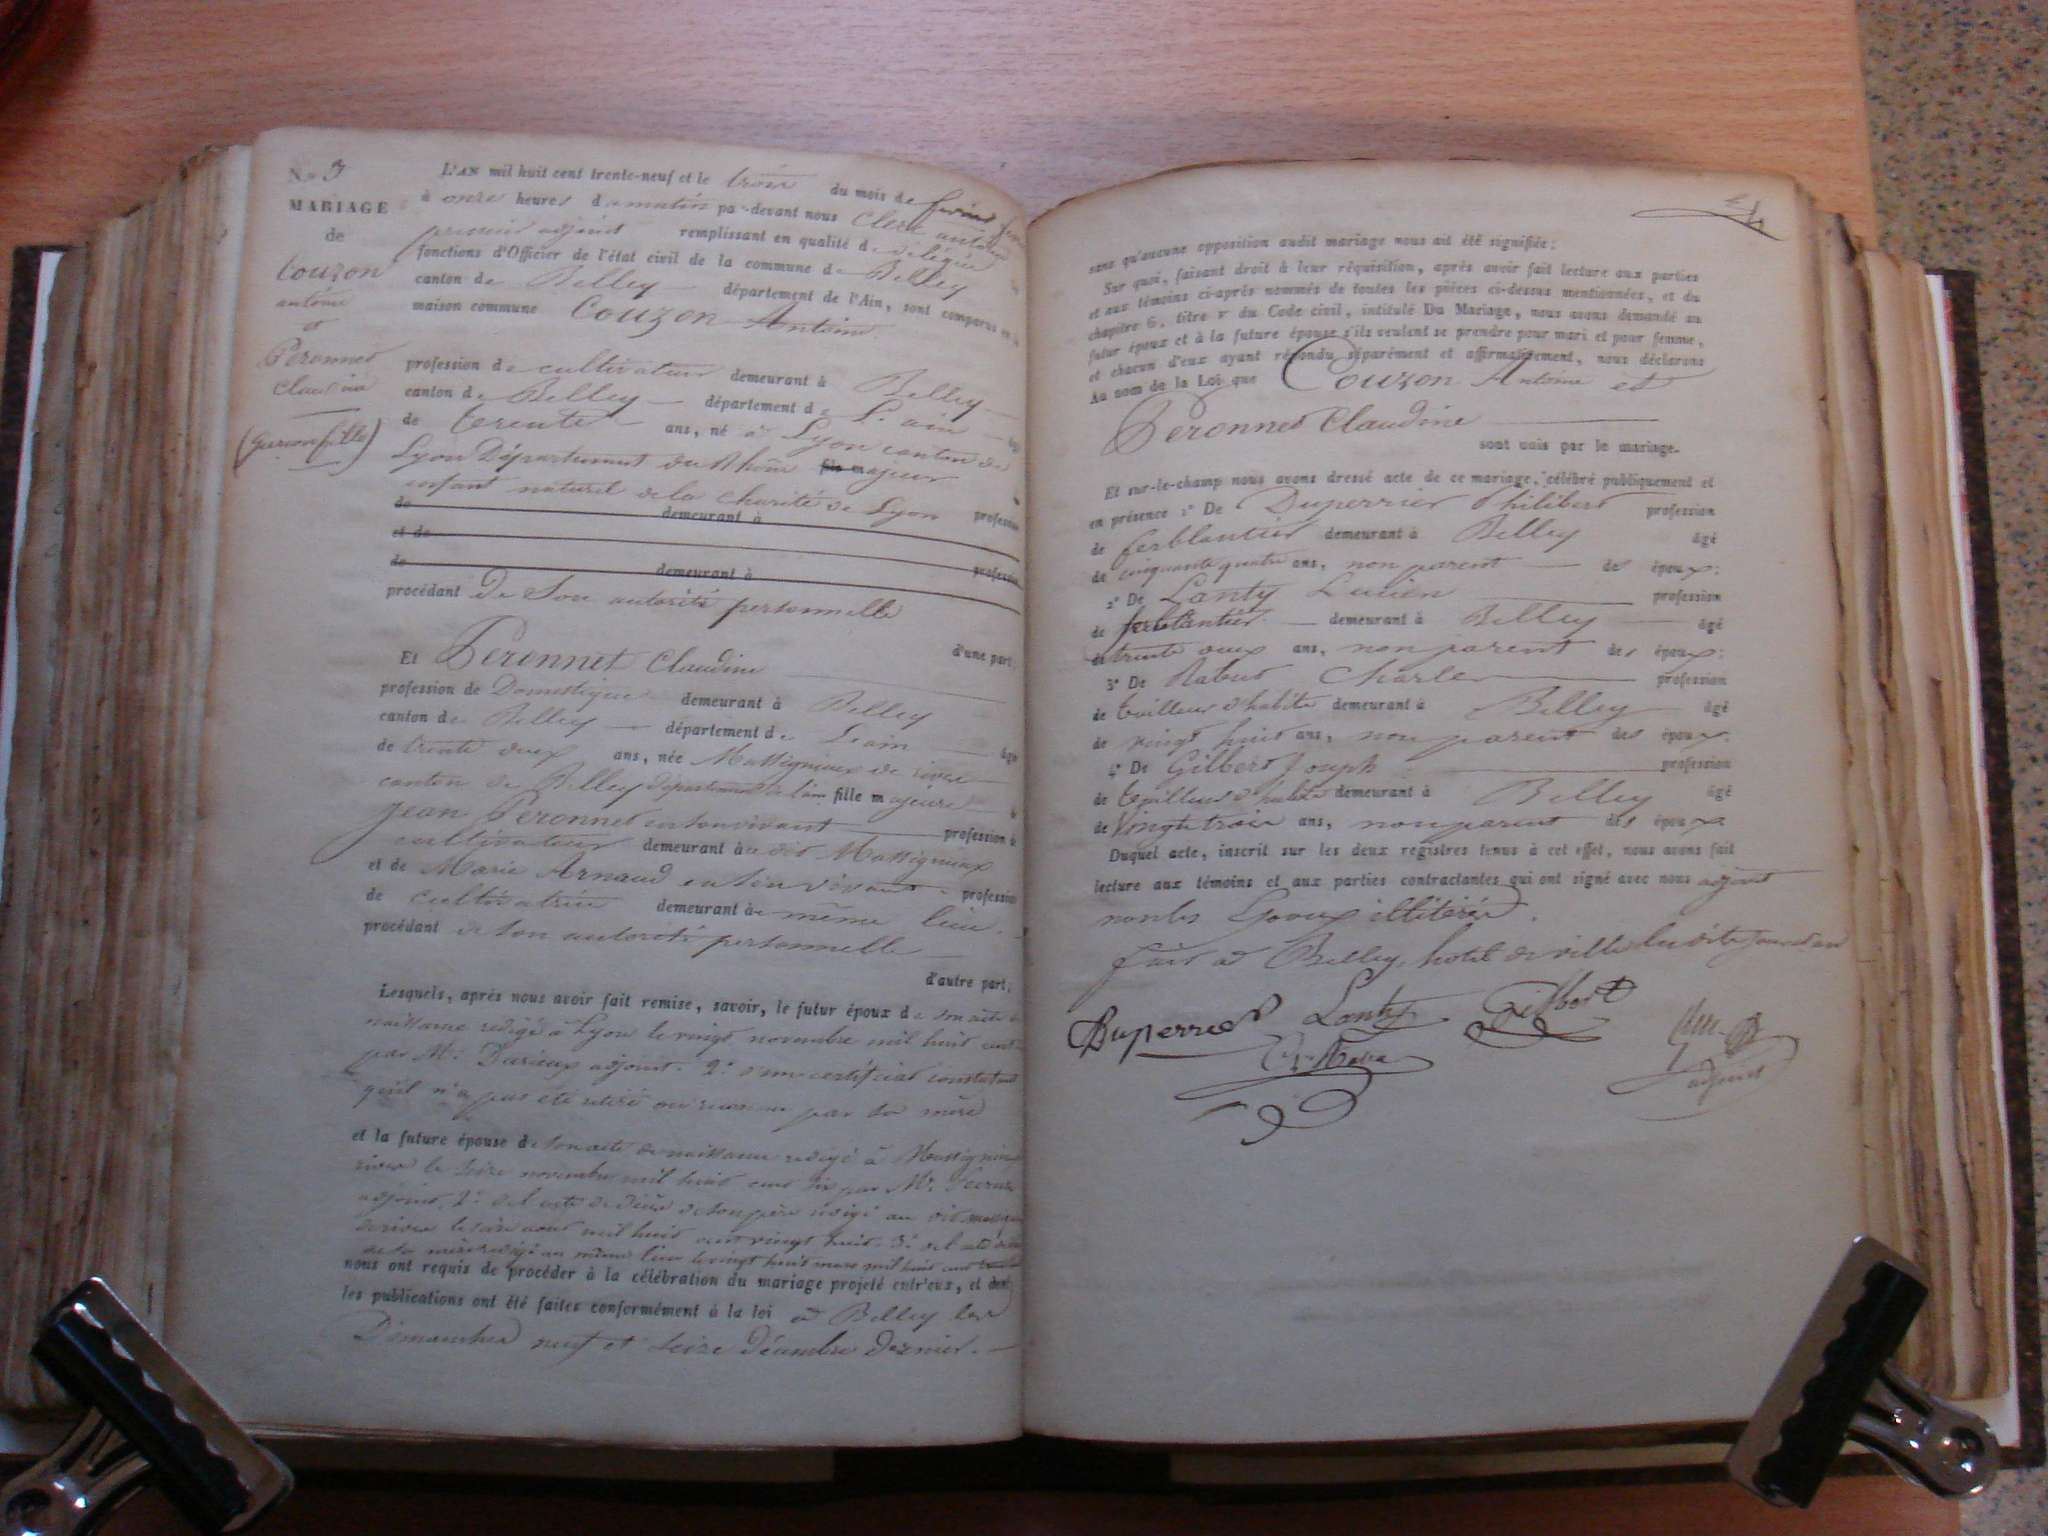 No 3
MARIAGE
de
Couzon
antoine
et
Peronnet
Claudine
(garçon fille)
L'AN mil huit cent trente-neuf et le trois du mois de
à onze heures du matin par-devant nous Clerc antoine
premier adjoint remplissant en qualité de délégué
fonctions d'Officier de l'état civil de la commune de Belley
canton de Belley département de l'Ain, sont comparus en la
maison commune Couzon Antoine
profession de cultivateur demeurant à Belley
canton de Belley département de L'ain âgé
de trente ans, né à Lyon canton de
Lyon Département du Rhône fils majeur
enfant naturel de la charité de Lyon profession
de demeurant à
et de
de demeurant à profession
procédant De Son autorité personnelle
d'une part;
Et Peronnet Claudine
profession de Domestique demeurant à Belley
canton de Belley département de L'ain âgée
de trente deux ans, née Massignieux de rives
canton de Belley Département de l'ain fille majeure de
Jean Peronnet en son vivant profession de
cultivateur demeurant au dit Massignieux
et de Marie Arnaud en son vivant profession
de cultivatrice demeurant au même lieu
procédant de son autorité personnelle
d'autre part;
Lesquels, après nous avoir fait remise, savoir, le futur époux de son acte de
naissance redigé à Lyon le vingt novembre mil huit cent
par Mr. Durieux adjoint. 2° d'un certificat constatant
qu'il n'a pas été retiré ou reconnu par sa mère
et la future épouse de son acte de naissance redigé à Massignieux
rives le seize novembre mil huit cent six par Mr.
adjoint, 2° de l'acte de décès de son père rédigé au dit Massignieux
de rives le seize aout mil huit cent vingt huit. 3° de l'acte de décès
de sa mère redigé au même lieu le vingt huit mars mil huit cent
nous ont requis de procéder à la célébration du mariage projeté entr'eux, et dont
les publications ont été faites conformément à la loi à Belley les
Dimanches neuf et seize Décembre dernier.
4
sans qu'aucune opposition audit mariage nous ait été signifiée;
Sur quoi, faisant droit à leur réquisition, après avoir fait lecture aux parties
et aux témoins ci-après nommés de toutes les pièces ci-dessus mentionnées, et du
chapitre 6, titre v du Code civil, intitulé Du Mariage, nous avons demandé au
futur époux et à la future épouse s'ils veulent se prendre pour mari et pour femme,
et chacun d'eux ayant répondu séparément et affirmativement, nous déclarons
Au nom de la Loi que Couzon Antoine et
Peronnet Claudine
sont unis par le mariage.
Et sur-le-champ nous avons dressé acte de ce mariage, célébré publiquement et
en présence 1° De Duperrier Philibert profession
de ferblantier demeurant à Belley âgé
de cinquante quatre ans, non parent des époux;
2° De Lanty Lucien profession
de ferblantier demeurant à Belley âgé
de trente deux ans, non parent des époux;
3° De Rabut Charles profession
de tailleur d'habits demeurant à Belley âgé
de vingt huit ans, non parent des époux;
4° De Gilbert Joseph profession
de tailleur d'habits demeurant à Belley âgé
de vingt trois ans, non parent des époux
Duquel acte, inscrit sur les deux registres tenus à cet effet, nous avons fait
lecture aux témoins et aux parties contractantes qui ont signé avec nous adjoint
non les Epoux illitérés.
fait à Belley, hotel de ville les dits jour et an
Duperrier Lanty Gilbert Clerc
adjoint